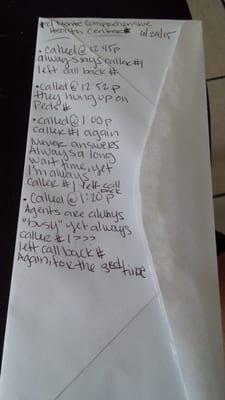 El Monte Comprehensive
Health Center 6/29/15
• called @ 12:45p
always says caller #1
left call back #
• called @ 12:52p
they hung up on
Peds #
• called @ 1:00p
caller #1 again
Never answers
Always a long
wait time, yet
I'm always
caller #1 left call
back
• called @ 1:20p
Agents are always
"busy" yet always
caller #1???
left call back #
Again, for the 3rd time